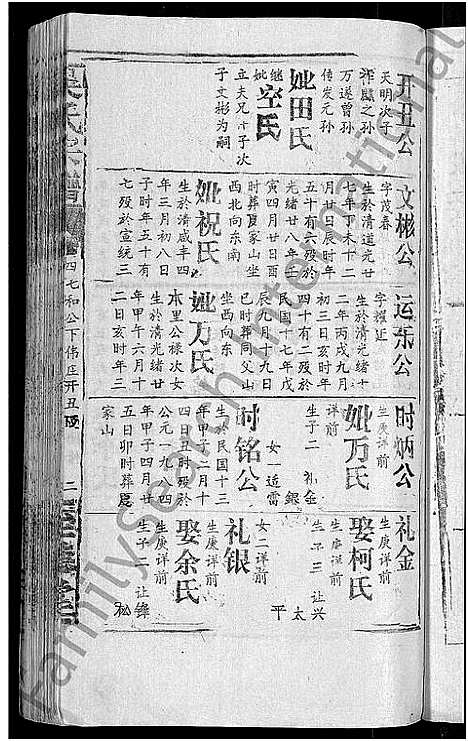 开丑公
天明次子
祚麟之孙
万遂曾孙
传发元孙
妣田氏
继妣空氏
立夫兄十子次
子文彬为嗣
文彬公
字茂春
生於清道光廿
七年丁未十二
月廿日辰时年
五十有六殁於
光绪廿八年壬
寅四月廿日酉
时葬夏家山坐
西北向东南
妣祝氏
生於清咸丰四
年三月初八日
子时年五十有
七殁於宣统三
运乐公
字耀延
生於清光绪十
二年丙戌九月
初三日亥时年
四十有二殁於
民国十七年戊
辰九月十九日
巳时葬同父山
坐西向东
妣万氏
木里公禄次女
生於清光绪廿
年甲午六月十
二日亥时年
时炳公
生庚详前
妣万氏
生庚详前
生子二 礼金
银
女一适雷
时铭公
生於民国十三
年甲子二月十
四日丑时殁於
公元一九八四
年甲子四月廿
五日卯时葬夏
家山
礼金
生庚详前
娶柯氏
生庚详前
生子三 让兴
太
平
礼银
女二详前
生庚详前
娶余氏
生庚详前
生子二 让锋
松
四七和公下伟庄开丑
二
FamilySearch International